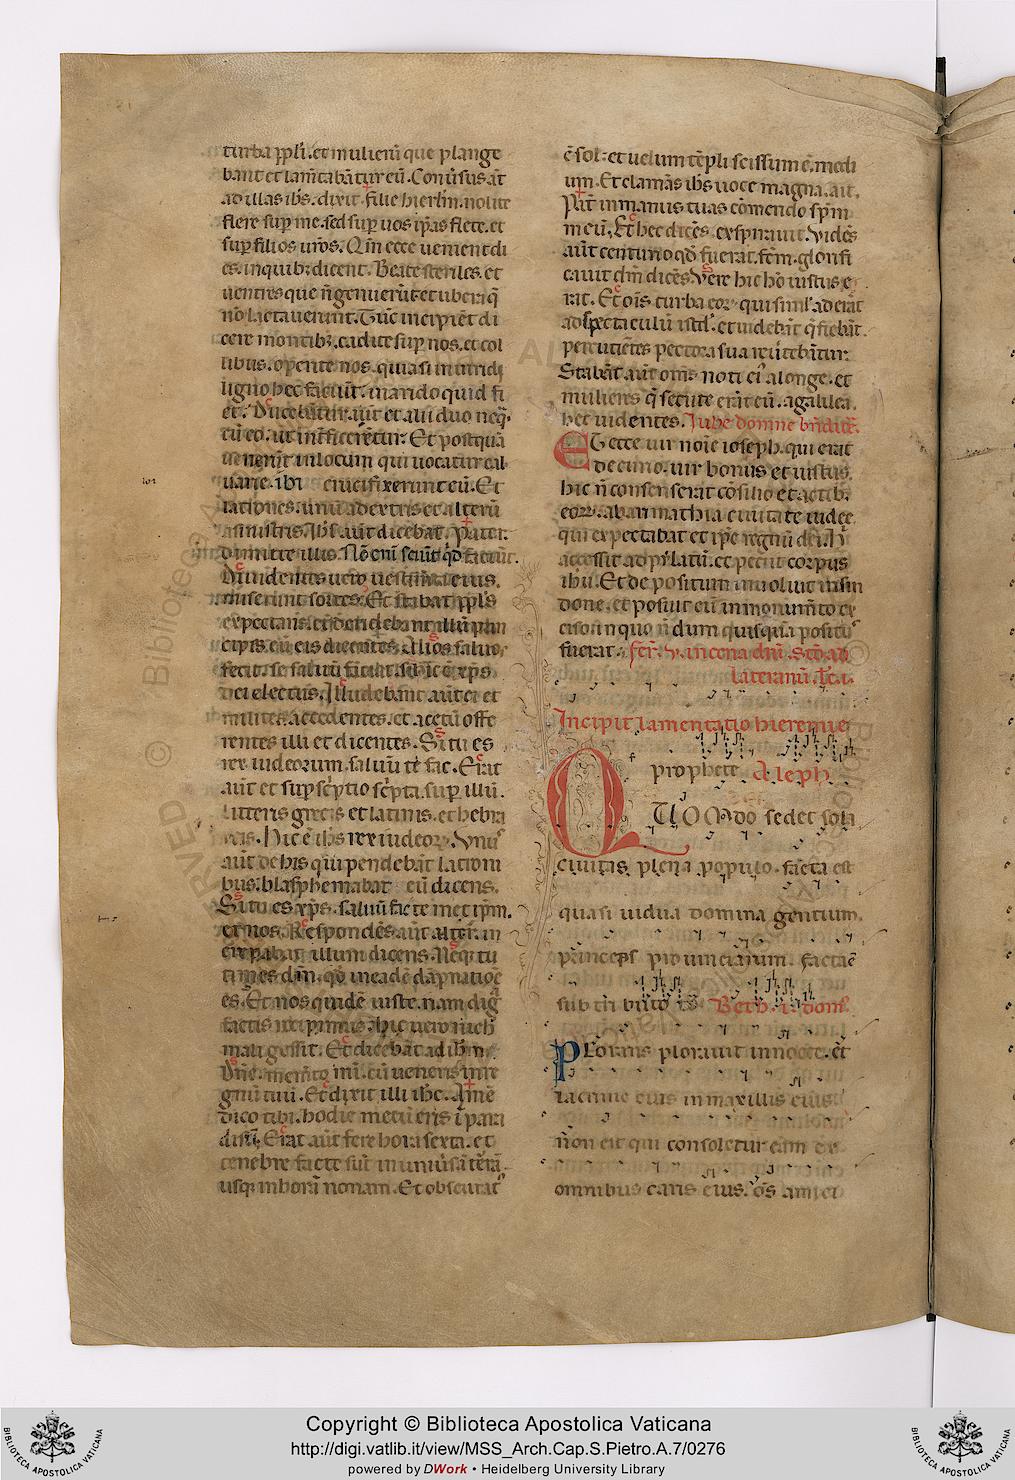 turba ppl̄i. et mulierū que plange
bant et lam̄tabāntur eū. Conūsus āt
ad illas ih̄s. dixit. filie hierl̄m. nolite
flere suꝑ me. sed suꝑ uos ip̄as flete. et
suꝑ filios ur̄os. Qm̄ ecce uenient di
es. in quib; dicent. Beate steriles. et
uentres que n̄ genuerūt. et ubera q̄
nō lactauerunt. Tūc incipiēt di
cere montib; cadite suꝑ nos. et col
libus. oꝑite nos. quia si in uiridi
ligno hec faciūt. in arido quid fi
et. Ducebātur aūt et alii duo neq̄
cū eo. ut int̄ficerētur. Et postquā
uenerūt in locum qui uocatur cal
uarie. ibi crucifixerunt eū. Et
latrones. unū a dextris et alterū
a sinistris. Ih̄s aūt dicebat. Pater
dimitte illis. Nō enī sciūt qd̄ faciūt.
Diuidentes uero uestimēta eius.
miserunt sortes. Et stabat ppl̄s
expectans. et deridebant illū prin
cipes cū eis dicentes. Alios saluos
fecit. se saluū faciat. si hic ē xp̄s
dei electus. Illudebānt aūt ei et
milites accedentes. et acetū offe
rentes illi et dicentes. Si tu es
rex iudeorum. saluū te fac. Erat
aūt et suꝑsc̄ptio sc̄pta. suꝑ illū.
litteris grecis et latinis. et hebra
icis. Hic ē ih̄s rex iudeoꝝ. Unus
aūt de his qui pendebāt latroni
bus. blasphemabat eū dicens.
Si tu es xp̄s. saluū fac te met ip̄m.
et nos. Respondēs aūt alter. in
crepabat illum dicens. Neq; tu
times dm̄. qd̄ in eadē dāpnatiōe
es. Et nos quidē iuste. nam dig
factis recipimus. hic uero nich̄
mali gessit. Et dicebat ad ih̄m.
Dn̄e. memēto mī. cū ueneris in re
gnū tuū. Et dixit illi ih̄c. Amē
dico tibi. hodie mecū eris ī para
disū. Erat aūt fere hora sexta. et
tenebre facte sūt in uniūsā tērā
usq; in horā nonam. Et obscuratꝰ
ē sol. et uelum tēpli scissum ē. medi
um. Et clamās ih̄s uoce magna. ait.
Pat̄ in manus tuas cōmendo sp̄m
meū. Et hec dicēs. expirauit. Uidēs
aūt centurio qd̄ fuerat fc̄m. glorifi
cauit dm̄ dicēs. Vere hic hō iustus e
rat. Et om̄s turba eoꝝ. qui simľ aderāt
ad spectaculū istđ. et uidebāt q̄ fiebāt.
percutiētes pectora sua reūtebāntur.
Stabāt aūt om̄s noti eiꝰ a longe. et
mulieres q̄ secute erāt eū. a galilea.
hec uidentes. Iube domne bn̄dicēr.
ET ecce uir noīe ioseph. qui erat
decurio. uir bonus et iustus.
hic n̄ consenserat cōsilio et actib;
eoꝝ. ab arimathia ciuitate iudee.
qui expectabat et ip̄e regnū dei. Hic
accessit ad pylatū. et petiit corpus
ih̄u. Et depositum inuoluit in sin
done. et posuit eū in monumēto ex
ciso. in quo n̄dum quisquā positus
fuerat. fer. v. in cena dn̄i. Stō. ad
lateranū. Lc. i.
Incipit lamentatio hieremie
prophete Aleph.
QUOModo sedet sola
ciuitas plena populo. facta est
quasi uidua domina gentium.
princeps prouinciarum. facta ē
sub tributo Beth.
Plorans plorauit in nocte. et
lacrime eius in maxillis eius
non est qui consoletur eam ex
omnibus caris eius. oꝰs amici
Copyright © Biblioteca Apostolica Vaticana
http://digi.vatlib.it/view/MSS_Arch.Cap.S.Pietro.A.7/0276
powered by DWork • Heidelberg University Library
BIBLIOTECA APOSTOLICA VATICANA
BIBLIOTECA APOSTOLICA VATICANA